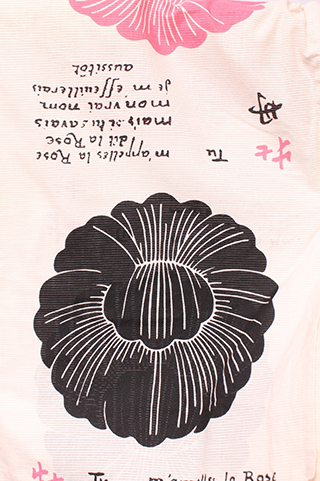 Tu m'appelles la Rose
dit la Rose
mais si tu savais
mon vrai nom
je m'effeuillerais
aussitôt
Tu m'appelles la Rose